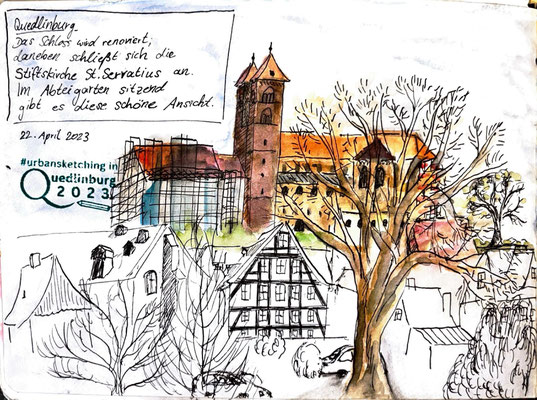 Quedlinburg
Das Schloss wird renoviert,
daneben schließt sich die
Stiftskirche St. Servatius an.
Im Abteigarten sitzend
gibt es diese schöne Ansicht.
22. April 2023
#urbansketching in
Quedlinburg
2023